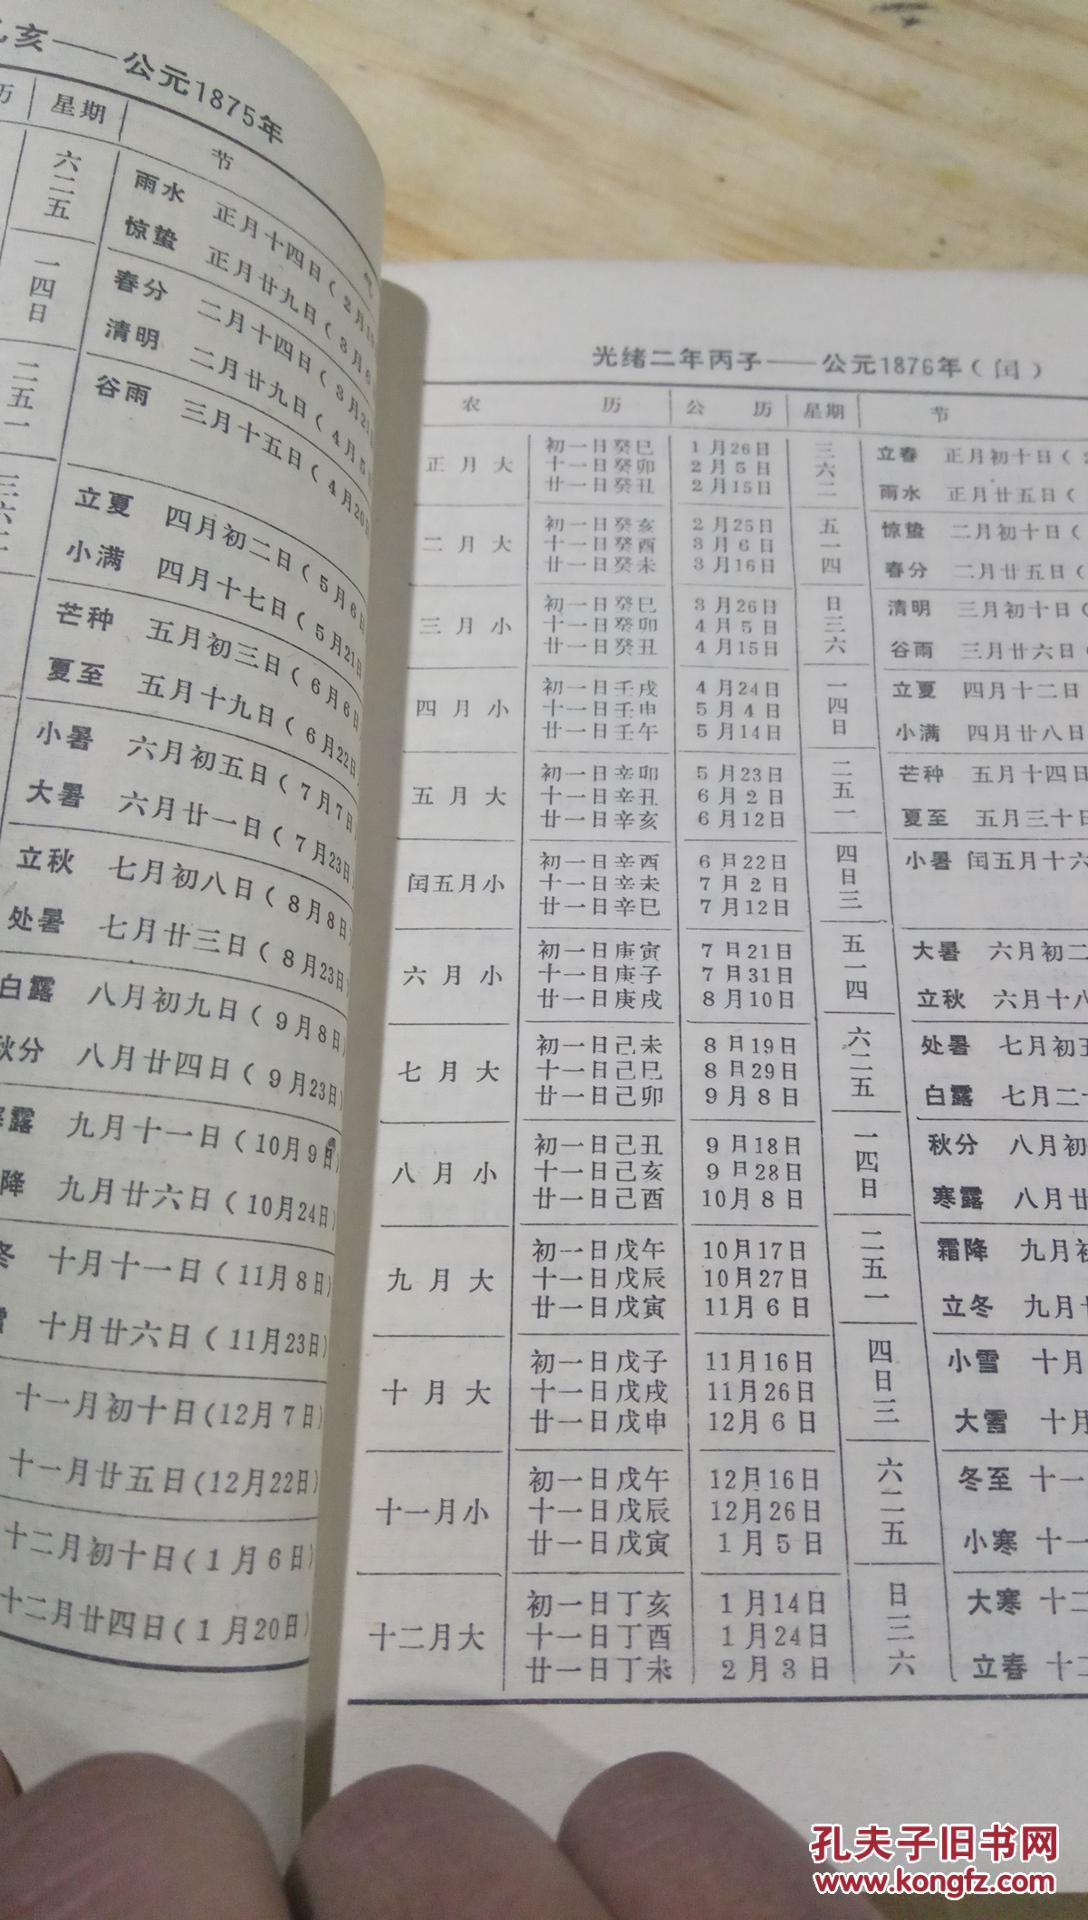 亥——公元1875年
历 星期 节
六二五
一四日
二五一
三六
雨水 正月十四日(2月1
惊蛰 正月廿九日(3月6
春分 二月十四日(3月2
清明 二月廿九日(4月5
谷雨 三月十五日(4月20
立夏 四月初二日(5月6日
小满 四月十七日(5月21日
芒种 五月初三日(6月6日
夏至 五月十九日(6月22日
小暑 六月初五日(7月7日
大暑 六月廿一日(7月23日
立秋 七月初八日(8月8日
处暑 七月廿三日(8月23日
白露 八月初九日(9月8日)
秋分 八月廿四日(9月23日)
露 九月十一日(10月9日)
降 九月廿六日(10月24日)
冬 十月十一日(11月8日)
十月廿六日(11月23日)
十一月初十日(12月7日)
十一月廿五日(12月22日)
十二月初十日(1月6日)
十二月廿四日(1月20日)
光绪二年丙子——公元1876年(闰)
农 历 公 历 星期 节
正月大 初一日癸巳 1月26日 三 立春 正月初十日(
十一日癸卯 2月5日 六
廿一日癸丑 2月15日 二 雨水 正月廿五日(
二月大 初一日癸亥 2月25日 五 惊蛰 二月初十日(
十一日癸酉 3月6日 一
廿一日癸未 3月16日 四 春分 二月廿五日(
三月小 初一日癸巳 3月26日 日 清明 三月初十日(
十一日癸卯 4月5日 三
廿一日癸丑 4月15日 六 谷雨 三月廿六日(
四月小 初一日壬戌 4月24日 一 立夏 四月十二日
十一日壬申 5月4日 四
廿一日壬午 5月14日 日 小满 四月廿八日
五月大 初一日辛卯 5月23日 二 芒种 五月十四日
十一日辛丑 6月2日 五
廿一日辛亥 6月12日 一 夏至 五月三十日
闰五月小 初一日辛酉 6月22日 四 小暑 闰五月十六
十一日辛未 7月2日 日
廿一日辛巳 7月12日 三
六月小 初一日庚寅 7月21日 五 大暑 六月初二
十一日庚子 7月31日 一
廿一日庚戌 8月10日 四 立秋 六月十八
七月大 初一日己未 8月19日 六 处暑 七月初五
十一日己巳 8月29日 二
廿一日己卯 9月8日 五 白露 七月二十
八月小 初一日己丑 9月18日 一 秋分 八月初
十一日己亥 9月28日 四
廿一日己酉 10月8日 日 寒露 八月廿
九月大 初一日戊午 10月17日 二 霜降 九月初
十一日戊辰 10月27日 五
廿一日戊寅 11月6日 一 立冬 九月十
十月大 初一日戊子 11月16日 四 小雪 十月
十一日戊戌 11月26日 日
廿一日戊申 12月6日 三 大雪 十月
十一月小 初一日戊午 12月16日 六 冬至 十一
十一日戊辰 12月26日 二
廿一日戊寅 1月5日 五 小寒 十一
十二月大 初一日丁亥 1月14日 日 大寒 十二
十一日丁酉 1月24日 三
廿一日丁未 2月3日 六 立春 十二
孔夫子旧书网
www.kongfz.com